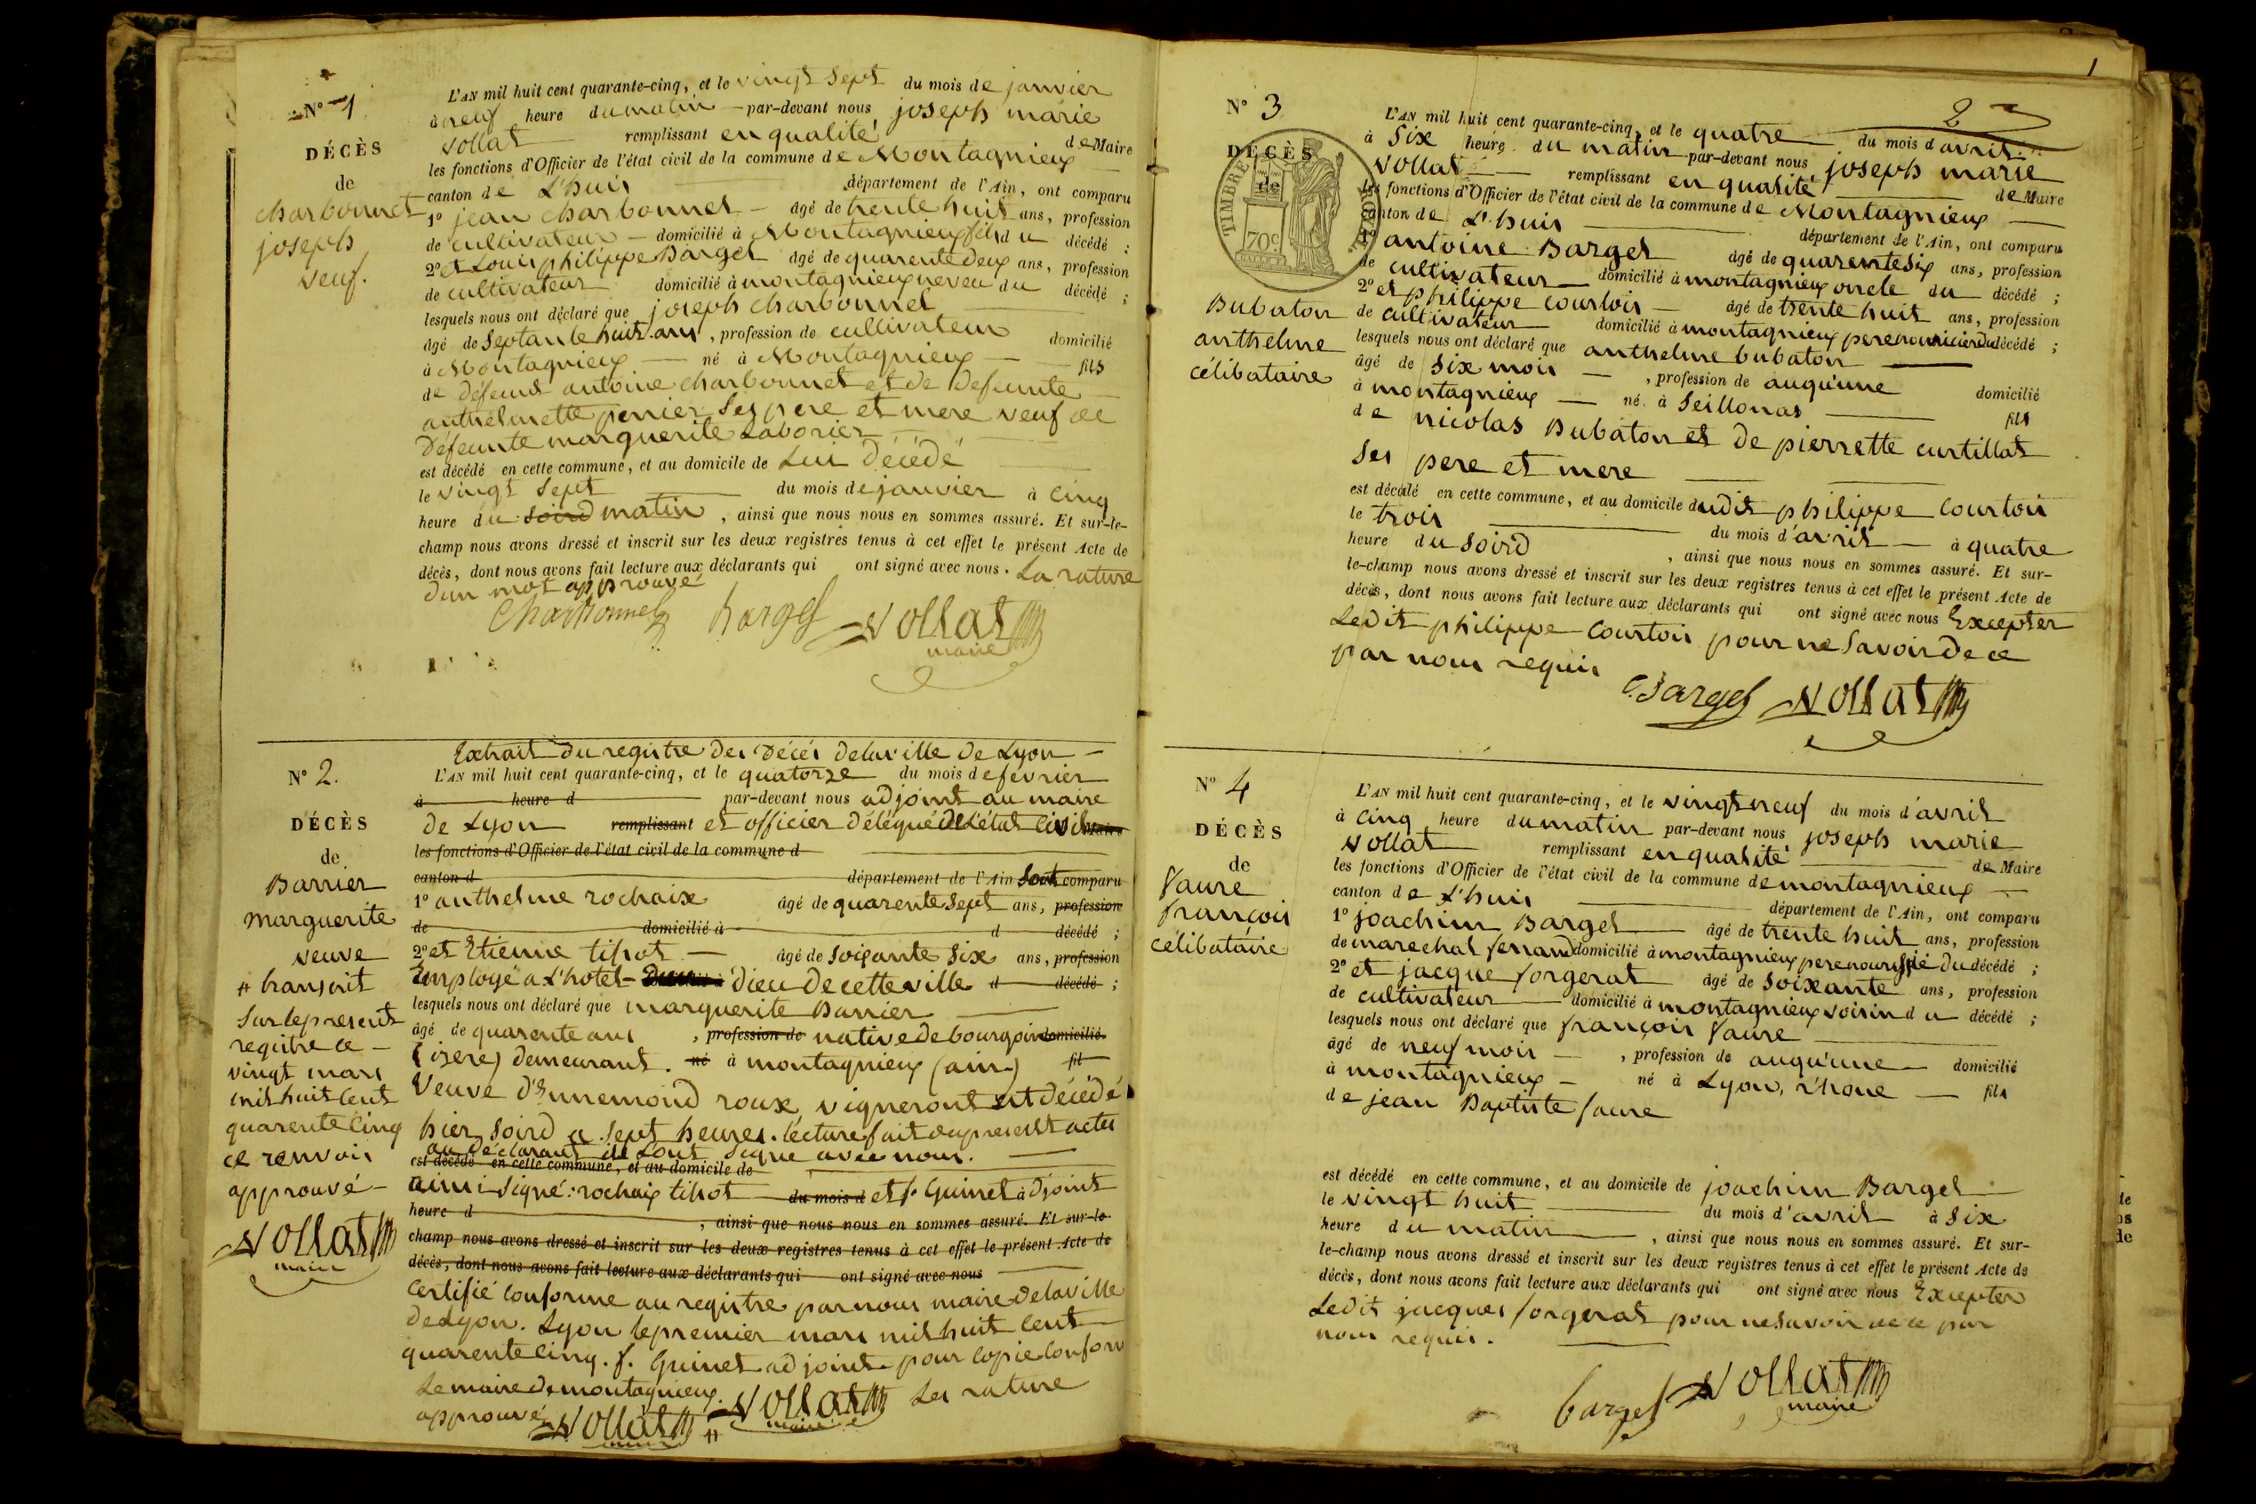 N° 1
DÉCÈS
de
charbonnet
joseph
veuf.
L'AN mil huit cent quarante-cinq, et le vingt sept du mois de janvier
à neuf heure du matin par-devant nous joseph marie
vollat remplissant en qualité de Maire
les fonctions d'Officier de l'état civil de la commune de Montagnieux
canton de L'huis département de l'Ain, ont comparu
1° jean charbonnet âgé de trente huit ans, profession
de cultivateur domicilié à Montagnieux fils du décédé ;
2° et Louis philippe Barget âgé de quarente deux ans, profession
de cultivateur domicilié à montagnieux neveu du décédé ;
lesquels nous ont déclaré que joseph charbonnet
âgé de septante huit ans, profession de cultivateur domicilié
à Montagnieux né à Montagnieux fils
de défeunt antoine charbonnet et de defeunte
anthelmette perrier ses pere et mere veuf de
Défeunte marguerite Laborier
est décédé en cette commune, et au domicile de Lui Décédé
le vingt sept du mois de janvier à cinq
heure du soird matin, ainsi que nous nous en sommes assuré. Et sur-le-
champ nous avons dressé et inscrit sur les deux registres tenus à cet effet le présent Acte de
décès, dont nous avons fait lecture aux déclarants qui ont signé avec nous. La rature
dun mot approuvé
Charbonnet barget vollat
maire
N° 2.
DÉCÈS
de
Barrier
marguerite
veuve
# transcrit
sur le present
regitre ce
vingt mars
mil huit cent
quarente cinq
ce renvoi
approuvé
vollat
maire
Extrait du regitre des Décés de la ville de Lyon
L'AN mil huit cent quarante-cinq, et le quatorze du mois de fevrier
à heure d par-devant nous adjoint au maire
de Lyon remplissant et officier délégué de L'état civil Maire
les fonctions d'Officier de l'état civil de la commune d
canton d département de l'Ain sont comparu
1° anthelme rochaix âgé de quarente sept ans, profession
de domicilié à d décédé ;
2° et Etienne tipot âgé de soixante six ans, profession
Employé a L'hotel dieu de cette ville d décédé ;
lesquels nous ont déclaré que marguerite Barrier
âgé de quarente ans, profession de native de bourgoin domicilié
(isere) demeurant. né à montagnieux (ain) fil
Veuve d'Ennemond roux vigneront est décédé
hier soird a sept heures. lecture fait du present actes
au déclarants ils L'ont signé avec nous.
est décédé en cette commune, et au domicile de
ainsi signé : rochaix tipot du mois d et f. Guinet adjoint
heure d, ainsi que nous nous en sommes assuré. Et sur-le-
champ nous avons dressé et inscrit sur les deux registres tenus à cet effet le présent Acte de
décès, dont nous avons fait lecture aux déclarants qui ont signé avec nous
Certifié conforme au regitre par nous maire de la ville
de Lyon. Lyon le premier mars mil huit cent
quarente cinq. f. Guinet adjoint pour copie conform
Le maire de montagnieux. vollat Les rature
maire
approuvé vollat #
maire
1
2
N° 3
DÉCÈS
de
TIMBRE ROYAL
70c
Bubaton
anthelme
célibataire
L'AN mil huit cent quarante-cinq, et le quatre du mois d'avril
à six heure du matin par-devant nous joseph marie
vollat remplissant en qualité de Maire
les fonctions d'Officier de l'état civil de la commune de Montagnieux
canton de L'huis département de l'Ain, ont comparu
1° antoine Barget âgé de quarente six ans, profession
de cultivateur domicilié à montagnieux oncle du décédé ;
2° et philippe courtois âgé de trente huit ans, profession
de cultivateur domicilié à montagnieux pere nouricier du décédé ;
lesquels nous ont déclaré que anthelme bubaton
âgé de six mois, profession de auqu'une domicilié
à montagnieux né à Seillonas fils
de nicolas Bubaton et de pierrette curtillat
ses pere et mere
est décédé en cette commune, et au domicile dudit philippe courtois
le trois du mois d'avril à quatre
heure du soird, ainsi que nous nous en sommes assuré. Et sur-
le-champ nous avons dressé et inscrit sur les deux registres tenus à cet effet le présent Acte de
décès, dont nous avons fait lecture aux déclarants qui ont signé avec nous Excepter
Ledit philippe courtois pour ne savoir de ce
par nous requis
Barget vollat
N° 4
DÉCÈS
de
faure
françois
célibataire
L'AN mil huit cent quarante-cinq, et le vingt neuf du mois d'avril
à cinq heure du matin par-devant nous joseph marie
vollat remplissant en qualité de Maire
les fonctions d'Officier de l'état civil de la commune de montagnieux
canton de L'huis département de l'Ain, ont comparu
1° joachim Barget âgé de trente huit ans, profession
de marechal ferrand domicilié à montagnieux pere nourissié du décédé ;
2° et jacque forgerat âgé de soixante ans, profession
de cultivateur domicilié à montagnieux voisin du décédé ;
lesquels nous ont déclaré que françois faure
âgé de neuf mois, profession de auqu'une domicilié
à montagnieux né à Lyon, rhone fils
de jean Baptiste faure
est décédé en cette commune, et au domicile de joachim Barget
le vingt huit du mois d'avril à six
heure du matin, ainsi que nous nous en sommes assuré. Et sur-
le-champ nous avons dressé et inscrit sur les deux registres tenus à cet effet le présent Acte de
décès, dont nous avons fait lecture aux déclarants qui ont signé avec nous Excepter
Ledit jacques forgerat pour ne savoir de ce par
nous requis.
barget vollat
maire